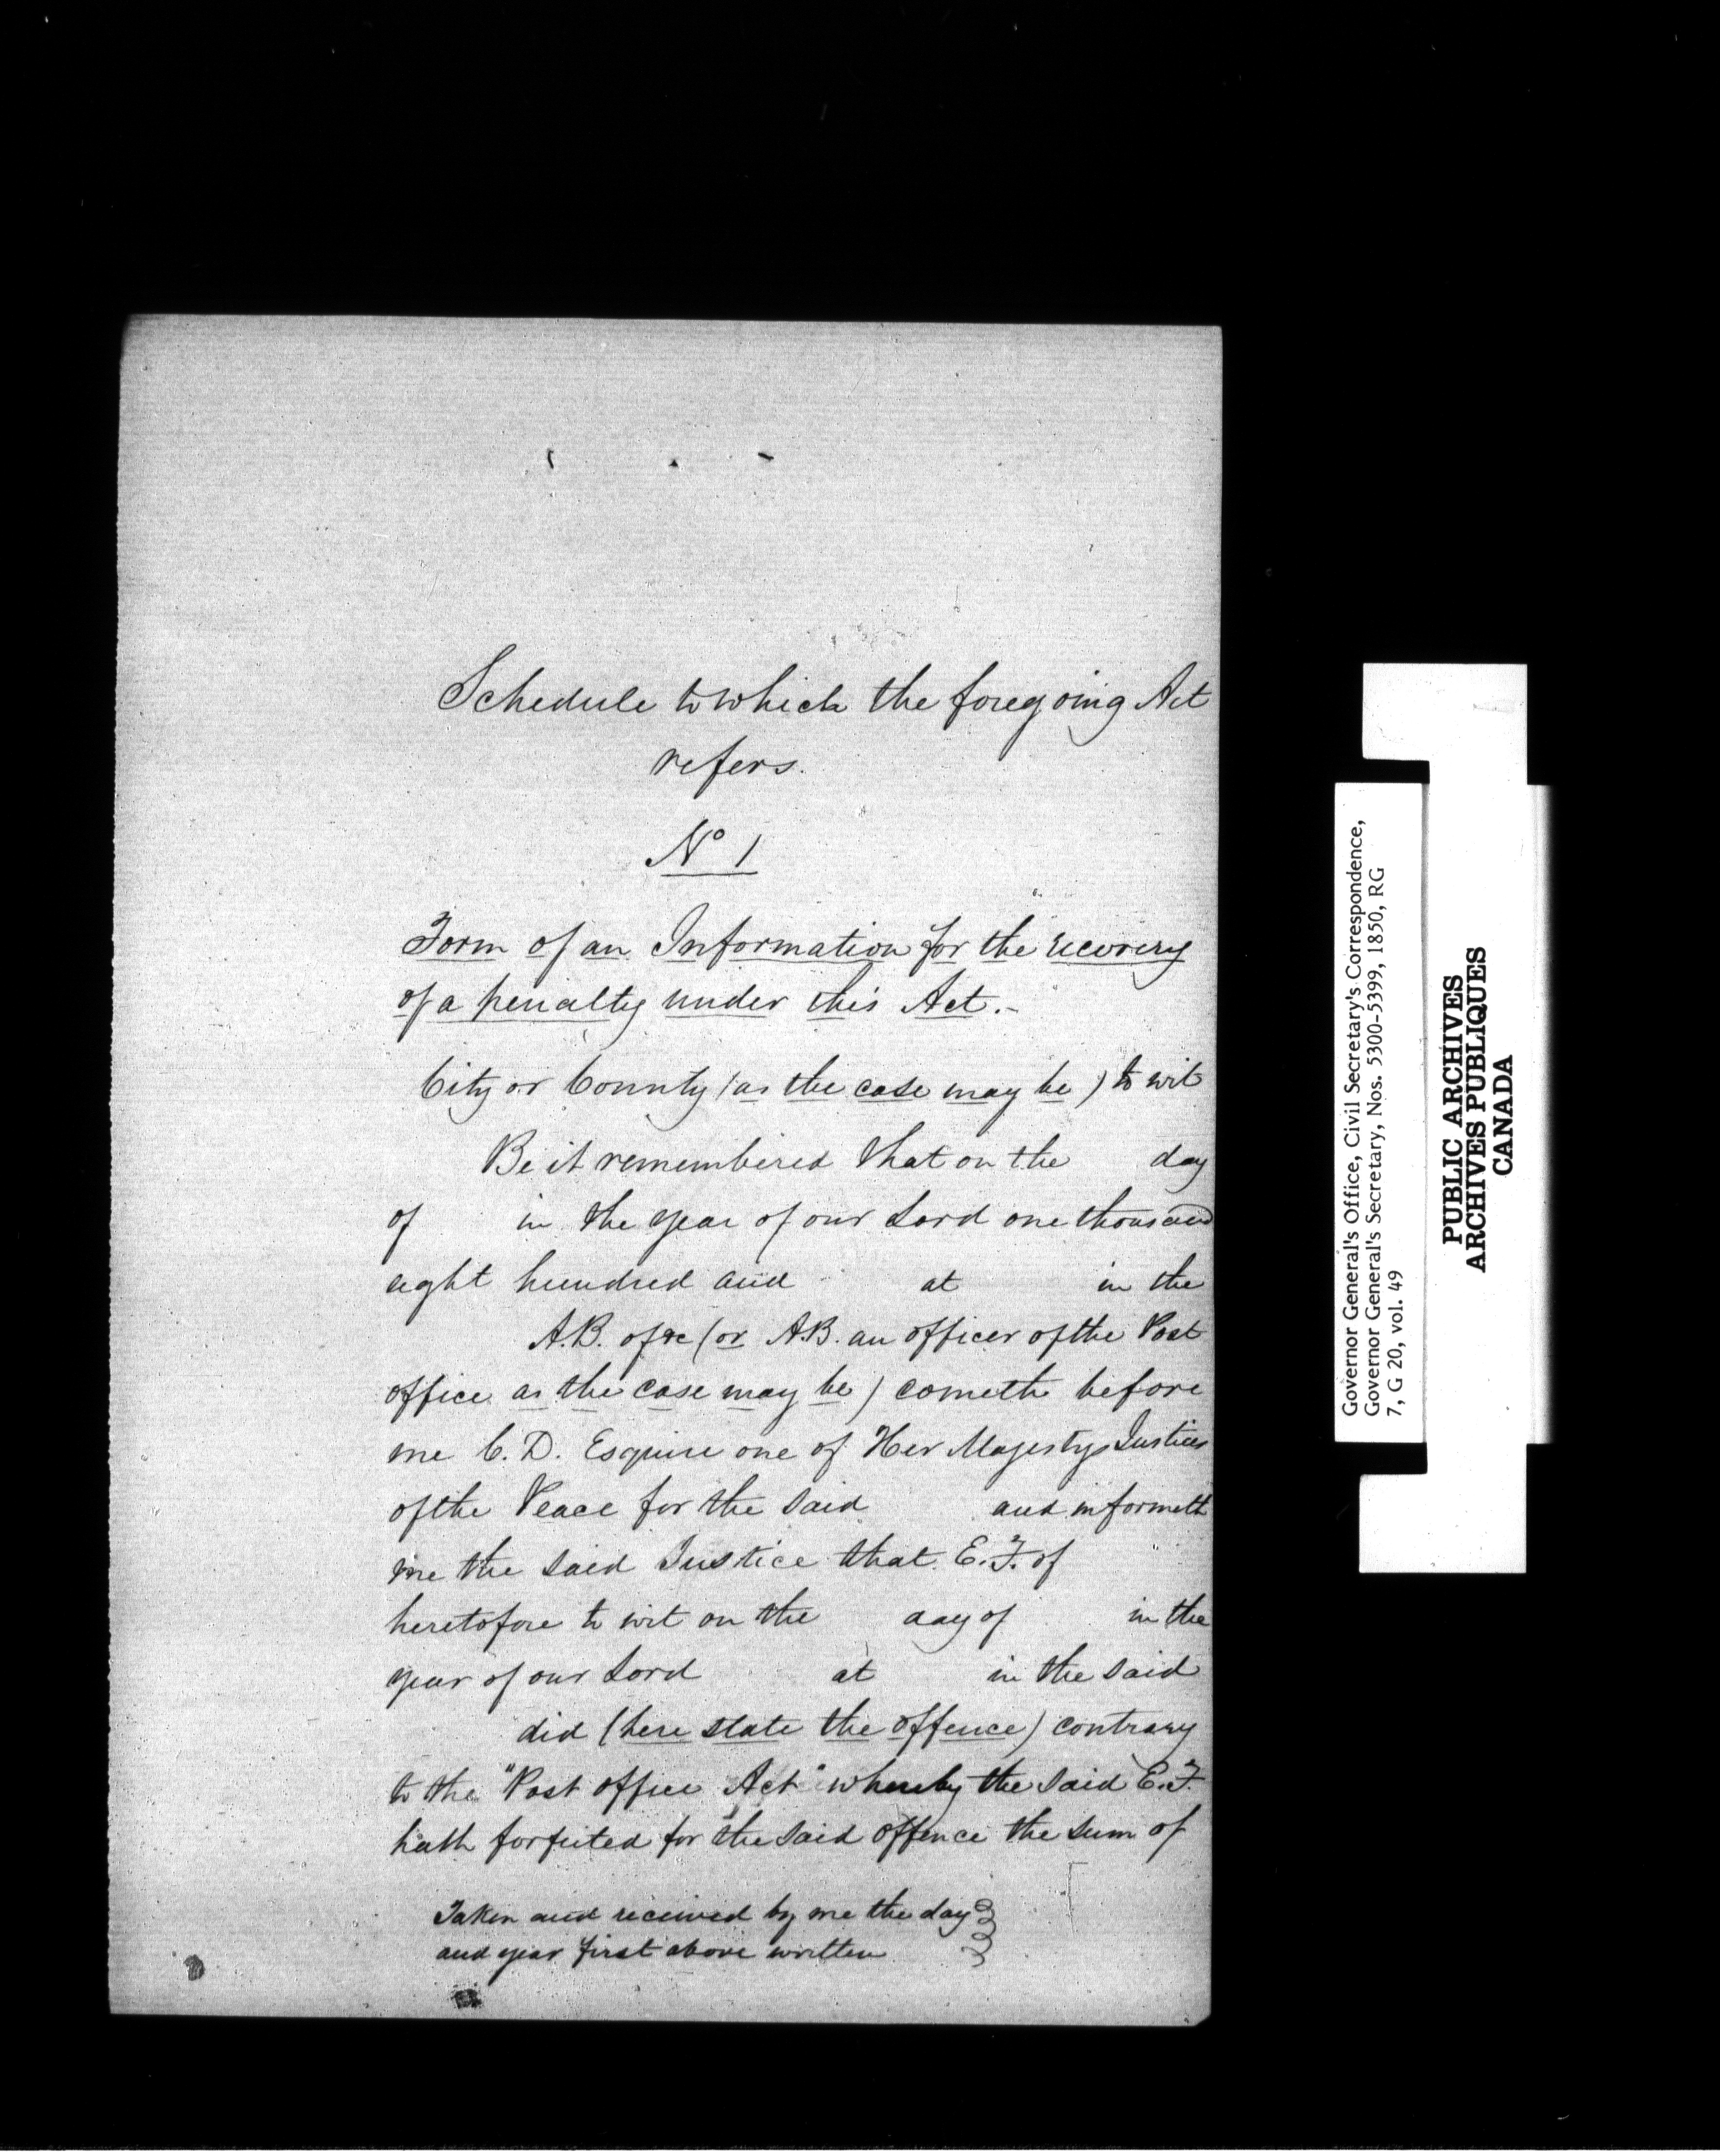 Schedule to which the foregoing Act
refers.
No 1
Form of an Information for the recovery
of a penalty under this Act.-
City or County (as the case may be) to wit
Be it remembered that on the day
of in the year of our Lord one thousand
eight hundred and at in the
A.B. of &c (or A.B. an officer of the Post
office as the case may be) cometh before
me C.D. Esquire one of Her Majestys Justices
of the Peace for the said and informeth
me the said Justice that E.F. of
heretofore to wit on the day of in the
year of our Lord at in the said
did (here state the offence) contrary
to the "Post office Act" whereby the said E.F.
hath forfeited for the said offence the sum of
Taken and received by me the day
and year first above written
Governor General's Office, Civil Secretary's Correspondence,
Governor General's Secretary, Nos. 5300-5399, 1850, RG
7, G 20, vol. 49
PUBLIC ARCHIVES
ARCHIVES PUBLIQUES
CANADA